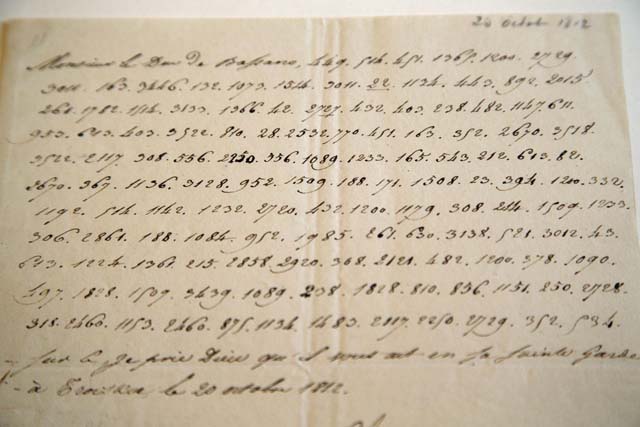 20 octob 1812
Monsieur le Duc de Bassano, 449. 514. 451. 1365. 1200. 2729.
3011. 163. 3446. 132. 1073. 1514. 3011. 22. 1134. 443. 892. 2015
261. 1782. 1514. 3133. 1366. 42. 2727. 432. 403. 238. 482. 1147. 611.
953. 643. 403. 3522. 810. 28. 2532. 770. 451. 163. 352. 2670. 3518.
3522. 2117. 308. 556. 2250. 356. 1089. 1233. 165. 543. 212. 613. 82.
3670. 367. 1136. 3128. 952. 1509. 188. 171. 1508. 23. 394. 1200. 332.
1192. 514. 1142. 1232. 2720. 432. 1200. 1179. 308. 214. 1509. 1233.
306. 2861. 188. 1084. 952. 1985. 261. 630. 3138. 521. 3012. 43.
613. 1224. 1361. 215. 2858. 2920. 308. 2121. 482. 1200. 378. 1090.
497. 1828. 1507. 3439. 1089. 238. 1828. 810. 836. 1151. 250. 2728.
318. 2460. 1153. 2466. 875. 1134. 1483. 2117. 2250. 2729. 352. 534.
Sur ce Je prie Dieu qu'il vous ait en Sa Sainte Garde
à Troitskoe, le 20 octobre 1812.